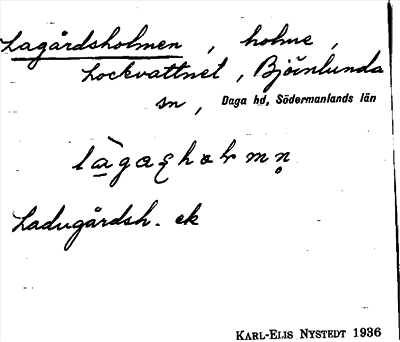 Lagårdsholmen, holme,
Lockvattnet, Björnlunda
sn, Daga hd, Södermanlands län
Ladugårdsh. ek
KARL-ELIS NYSTEDT 1936